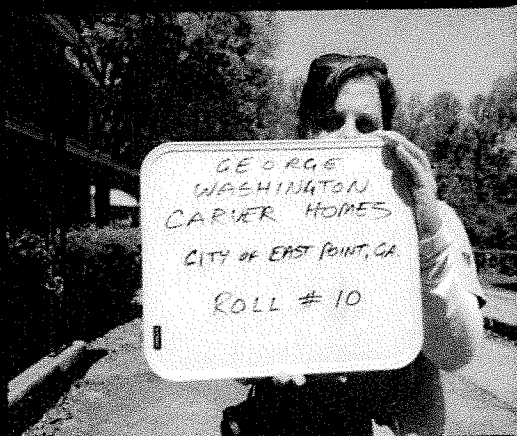 GEORGE
WASHINGTON
CARVER HOMES
CITY OF EAST POINT, GA.
ROLL # 10